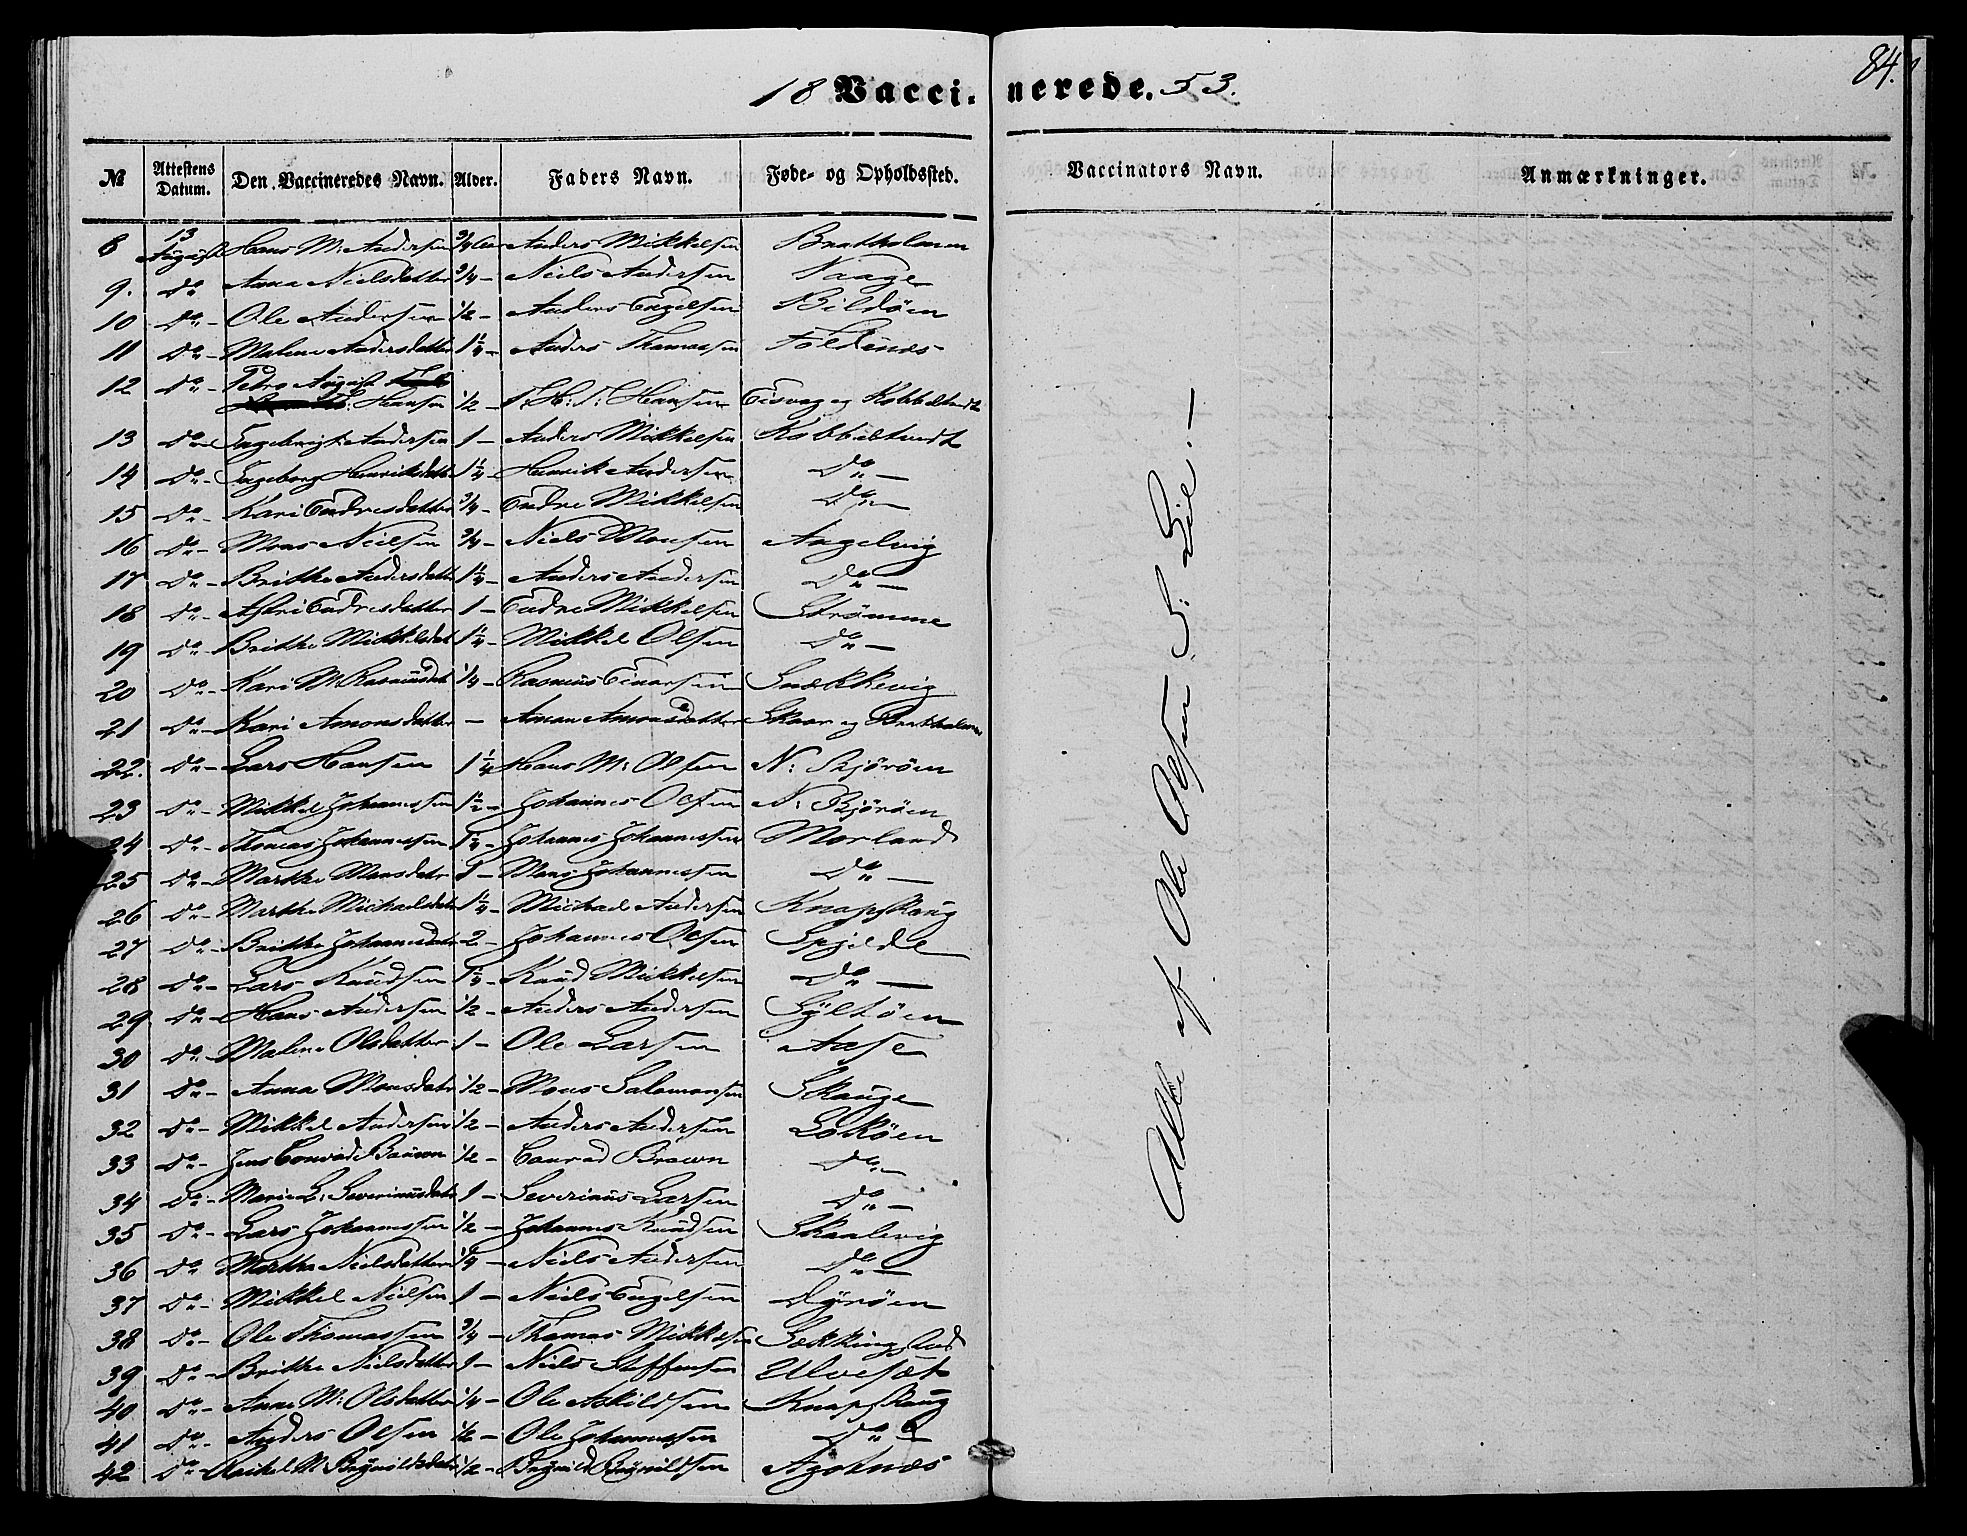 84.
18 Vacci- nerede. 53.
№ Attestens Datum. Den Vaccineredes Navn. Alder. Faders Navn. Føde- og Opholdssted. Vaccinators Navn. Anmærkninger.
8 13 August Hans M. Andersen 3/4 Aar Anders Mikkelsen Bratholmen
9. Do Anna Nielsdatter 3/4 - Niels Andersen Vaage
10 Do - Ole Andersen 1/2 - Anders Engelsen Bildöen
11 Do - Malene Andersdatter 1 1/4 - Anders Thomassen Foldenæs
12 Do - Petro August
Hansen 1/2 - Hansen Eisvag og Kobbeltvedt
13 Do - Engebrigt Andersen 1 - Anders Mikkelsen Kobbeltvedt
14 Do - Ingeborg Henriksdatt 1 1/4 - Henrik Andersen Do -
15 Do - Kari Endresdatter 3/4 - Endre Mikkelsen Do -
16 Do - Mons Nielsen 3/4 - Niels Monsen Angelvig
17 Do - Brithe Andersdatt 1 1/4 - Anders Andersen Do -
18 Do - Astri Endresdatter 1 - Endre Mikkelsen Strömme
19 Do - Brithe Mikkelsdat 1 1/4 - Mikkel Olsen Do -
20 Do - Kari M. Rasmusdat 1/4 - Rasmus Einarsen Snekkevig
21 Do - Kari Amonsdatter - Amon Amonsdatter Skaar og Bratholmen
22. Do - Lars Hansen 1 1/4 Hans M: Olsen N: Björöen
23 Do - Mikkel Johannessen 1 1/2 - Johannes Olsen N: Björöen
24 Do - Thomas Johannessen 1 1/4 - Johannes Johannessen Morland
25 Do - Marthe Monsdatr 1 - Mons Johannessen Do -
26 Do - Marthe Michaelsdatr 1 1/4 - Michael Andersen Knapskoug
27 Do - Brithe Johannesdatr 2 - Johannes Olsen Spjelde
28 Do - Lars Knudsen 1 1/4 - Knud Mikkelsen Do -
29 Do - Hans Andersen 1/2 - Anders Andersen Syltöen
30 Do - Malene Olsdatter 1 - Ole Larsen Aase
31 Do - Anna Monsdatr 1/2 - Mons Salomonsen Skauge
32 Do - Mikkel Andersen 1/2 - Anders Andersen Loköen
33 Do - Jens Conrad Brown 1/2 - Conrad Brown Do -
34 Do - Marie L: Severinusdatr 1 - Severinus Larsen Do -
35 Do - Lars Johannessen 1/2 - Johannes Knudsen Skaalevig
36 Do Martha Nielsdatter 1/4 - Niels Andersen Do -
37 Do - Mikkel Nielsen 1 - Niels Engelsen Dyröen
38 Do - Ole Thomassen 3/4 - Thomas Mikkelsen Sekkingstad
39 Do - Brithe Nielsdatter 1 - Niels Steffensen Ulvesæt
40 Do - Anne M: Olsdatter 1/4 - Ole Askildsen Knapskoug
41 Do - Anders Olsen 1/2 - Ole Johannessen Do -
42 Do - Rakel M. Bagnildsdatr 1/2 - Agotnæs
Alle af Ole Olsen S. Lie. -